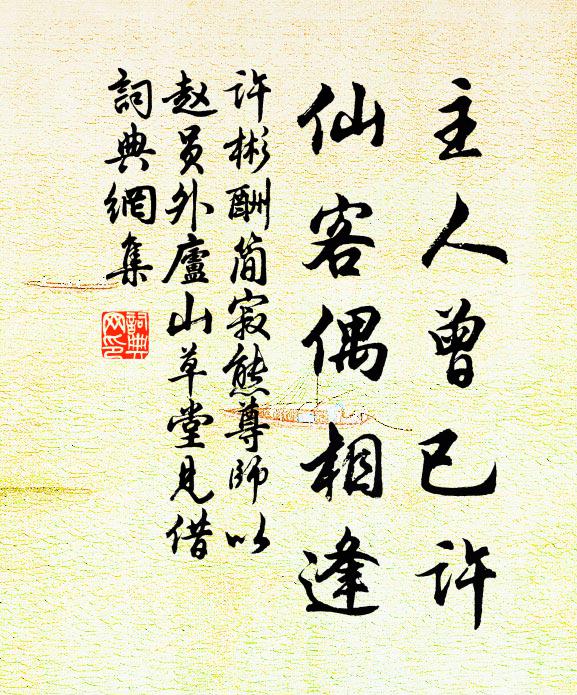 主人曾已许
仙客偶相逢
许彬酬简寂熊尊师以
赵员外廬山草堂见借
詞典網集
詞典網印